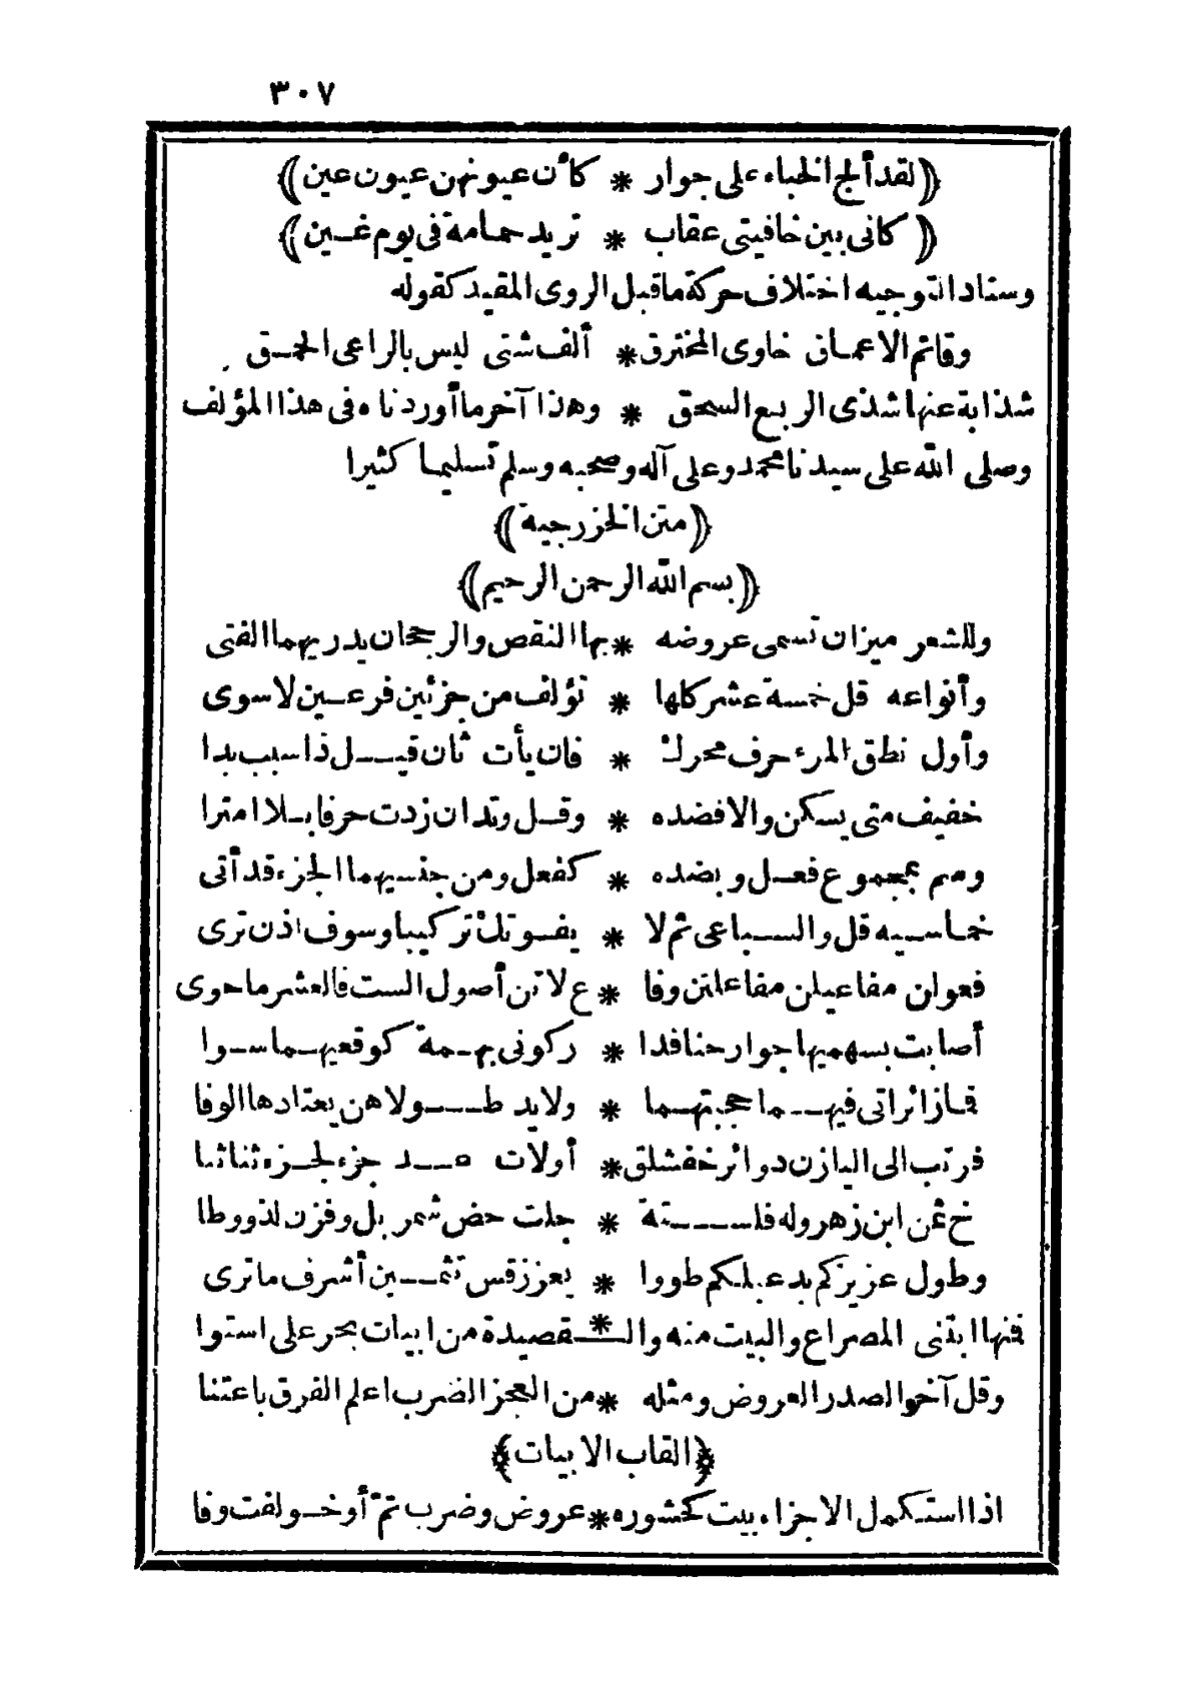 ٣٠٧
(لقد ألج الخباء على جوار * كأن عيونهن عيون عين)
(كانى بين خافيتى عقاب * تريد حمامة فى يوم غين)
وسناد التوجيه اختلاف حركة ما قبل الروى المقيد كقوله
وقاتم الاعماق خاوى المخترق * ألف شتى ليس بالراعى الحمق
شذابة عنها شذى الربع السحق * وهذا آخر ما أوردناه فى هذا المؤلف
وصلى الله على سيدنا محمد وعلى آله وصحبه وسلم تسليما كثيرا
(متن الخزرجية)
(بسم الله الرحمن الرحيم)
وللشعر ميزان تسمى عروضه * بها النقص والرجحان يدريهما الفتى
وأنواعه قل خمسة عشر كلها * تؤلف من جزئين فرعين لا سوى
وأول نطق المرء حرف محرك * فان يأت ثان قيل ذا سبب بدا
خفيف متى يسكن والا فضده * وقل وتد ان زدت حرفا بلا امترا
وسم بمجموع فعل وبضده * كفعل ومن جنسيهما الجزء قد أتى
خماسيه قل والسباعى ثم لا * يفوتك تركيبا وسوف اذن ترى
فعولن مفاعيلن مفاعلتن وفا * ع لاتن أصول الست فالعشر ما حوى
أصابت بسهميها جوارحنا فدا * ركونى بهمة كوقعيهما سوا
فزائراتى فيهما حجبتهما * ولا يد طولاهن يعتادها الوفا
فرتب الى اليازن دوائر خفشلق * أولات عد جزء لجزء ثنا ثنا
خ ثمن ابن زهر وله فلستة * جلت حض شمر بل وفزن لذو وطا
وطول عزيز كم بدعبلكم طووا * يعزز قس تثمين أشرف ما ترى
فنها ابتنى المصراع والبيت منه والـ * ـقصيدة من ابيات بحر على استوا
وقل آخر الصدر العروض ومثله * من العجز الضرب اعلم الفرق باعتنا
(القاب الابيات)
اذا استكمل الاجزاء بيت كحشوه * عروض وضرب تم أو خولفت وفا